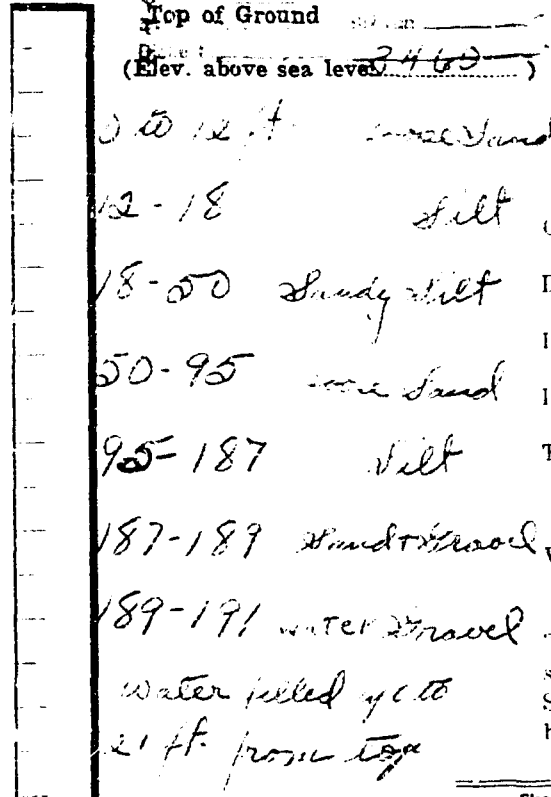 Top of Ground
(Elev. above sea level 3460 )
0 to 12 ft. Sand
12-18 Silt
18-50 Sandy Silt
50-95 Sand
95-187 Silt
187-189 Sand + Gravel
189-191 water Gravel
water filled up to
21 ft. from top